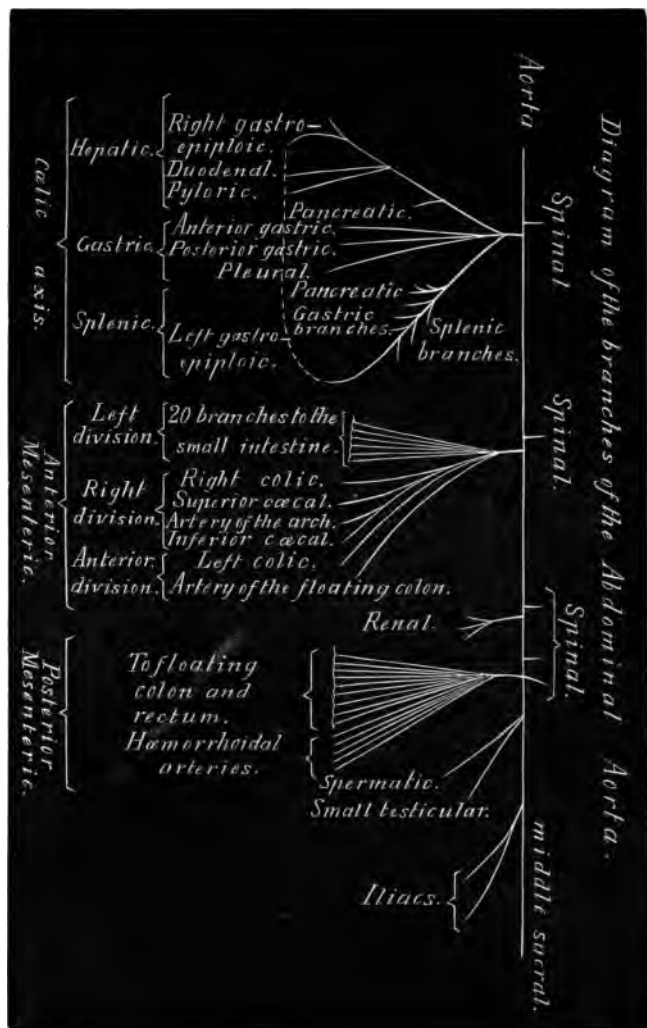 Diagram of the branches of the Abdominal Aorta.
Aorta
Spinal.
Spinal.
Spinal.
middle sacral.
Cœlic axis.
Hepatic.
Right gastro-
epiploic.
Duodenal.
Pyloric.
Pancreatic.
Gastric.
Anterior gastric.
Posterior gastric.
Pleural.
Splenic.
Pancreatic
Gastric
branches.
Splenic
branches.
Left gastro-
epiploic.
Anterior
Mesenteric.
Left
division.
20 branches to the
small intestine.
Right
division.
Right colic.
Superior cæcal.
Artery of the arch.
Inferior cæcal.
Anterior
division.
Left colic.
Artery of the floating colon.
Renal.
Posterior
Mesenteric.
To floating
colon and
rectum.
Hæmorrhoidal
arteries.
Spermatic.
Small testicular.
Iliacs.